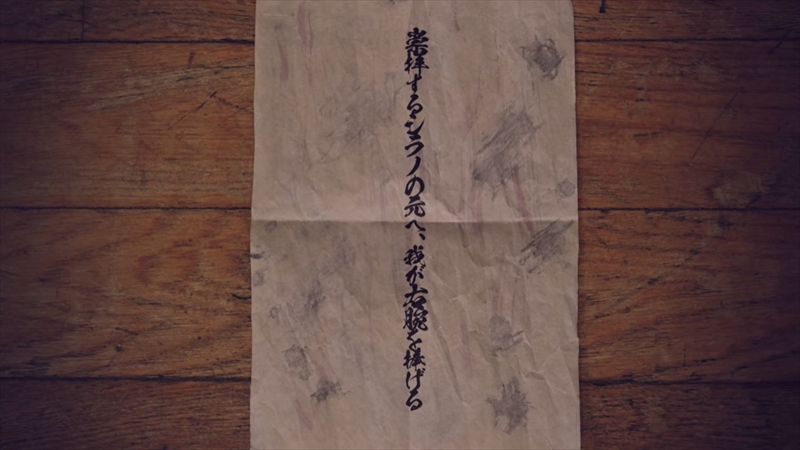 崇拝する の元へ、我が右腕を捧げる